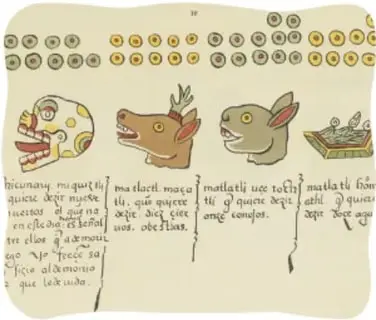 hicunavy. miquiztli
quiere dezir nueve
muertos. el que na
en este dia. es señal
tre ellos q̃ a de morir
sa
ficio al demonio
que le de vida.
matlactl. maça
tli. quiere
dezir. diez cier
vos. obestias.
matlatli uçe toch
tli q̃ quiere dezir.
onze conejos.
matlatli hom
athl q̃ quiere
dezir doçe agu